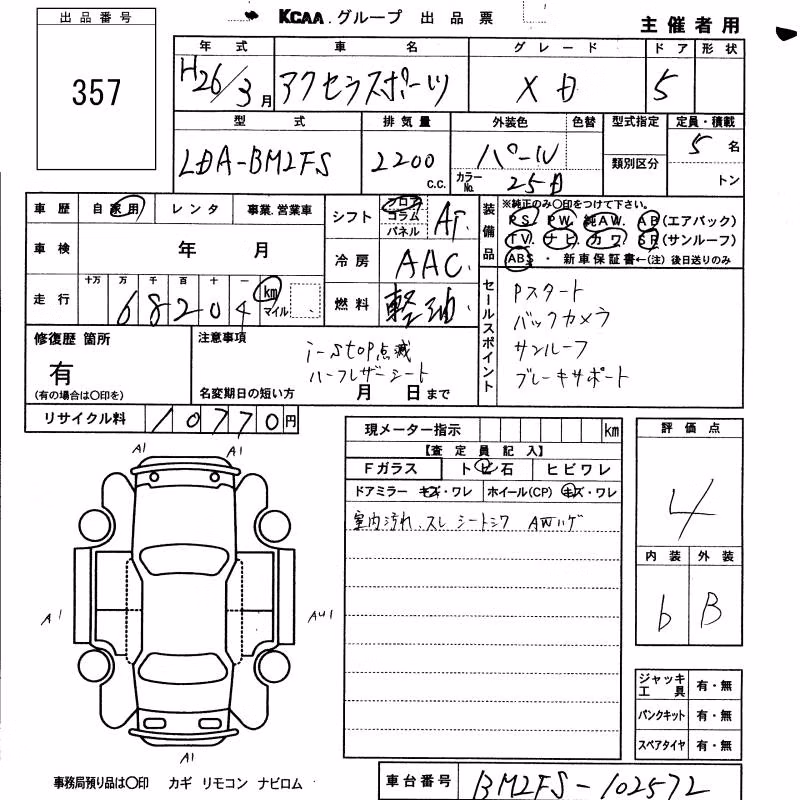 出品番号
KCAA.グループ 出品票
主催者用
357
年式 車名 グレード ドア 形状
H26/3月 アクセラスポーツ XD 5
型式 排気量 外装色 色替 型式指定 定員・積載
LDA-BM2FS 2200 c.c. パール 5名
カラーNo. 25D 類別区分 トン
車歴 自家用 レンタ 事業.営業車
シフト フロア コラム パネル AT
装備品 ※純正のみ〇印をつけて下さい。
PS. PW. 純AW. AB(エアバック)
TV. ナビ. カワ. SR(サンルーフ)
ABS ・ 新車保証書←(注)後日送りのみ
車検 年 月
冷房 AAC
走行 十万 万 千 百 十 一
68204 km マイル
燃料 軽油
セールスポイント
Pスタート
バックカメラ
サンルーフ
ブレーキサポート
修復歴 箇所
有
(有の場合は〇印を)
注意事項
i-stop点滅
ハーフレザーシート
名変期日の短い方 月 日まで
リサイクル料 10770円
現メーター指示 km
【査定員記入】
Fガラス トビ石 ヒビワレ
ドアミラー キズ・ワレ ホイール(CP) キズ・ワレ
室内汚れ、スレ シートシワ AWハゲ
評価点
4
内装 外装
b B
A1 A1
A1 AU1
A1
ジャッキ工具 有・無
パンクキット 有・無
スペアタイヤ 有・無
事務局預り品は〇印 カギ リモコン ナビロム
車台番号 BM2FS-102572